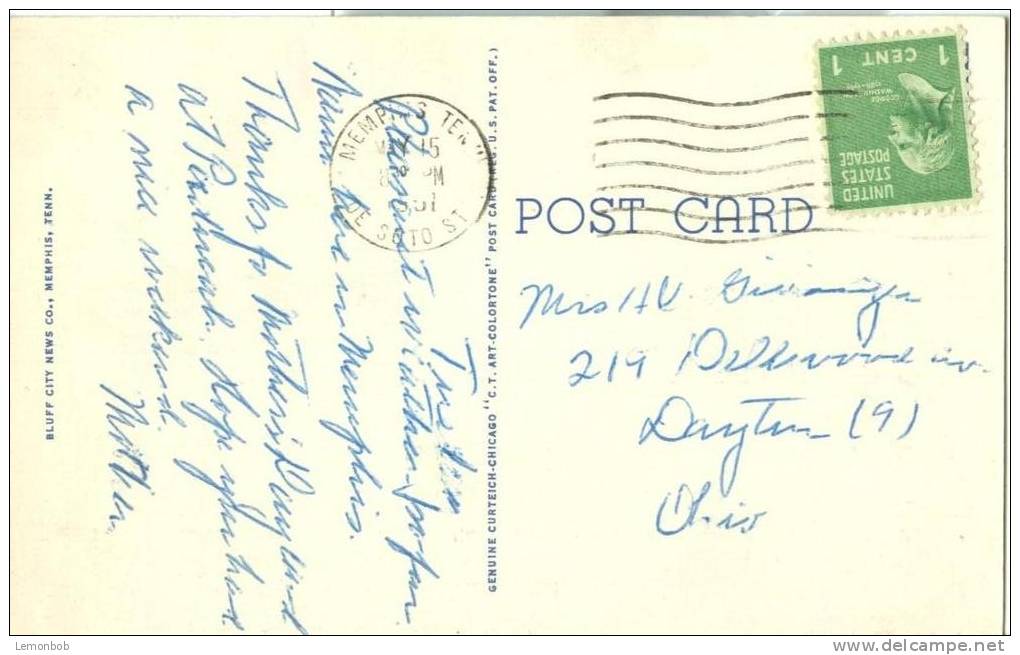 Tues am
Pleasant weather so far
here in Memphis.
Thanks for Mother's Day card
at Penthouse. Hope you had
a nice weekend.
Mother
BLUFF CITY NEWS CO., MEMPHIS, TENN.
GENUINE CURTEICH-CHICAGO "C.T. ART-COLORTONE" POST CARD (REG. U.S. PAT. OFF.)
MEMPHIS TENN
MAY 15
PM
1951
DE SOTO ST
1 CENT 1
GEORGE
WASHINGTON
UNITED
STATES
POSTAGE
POST CARD
Mrs H V
219 Dellwood av.
Dayton (9)
Ohio
Lemonbob
www.delcampe.net